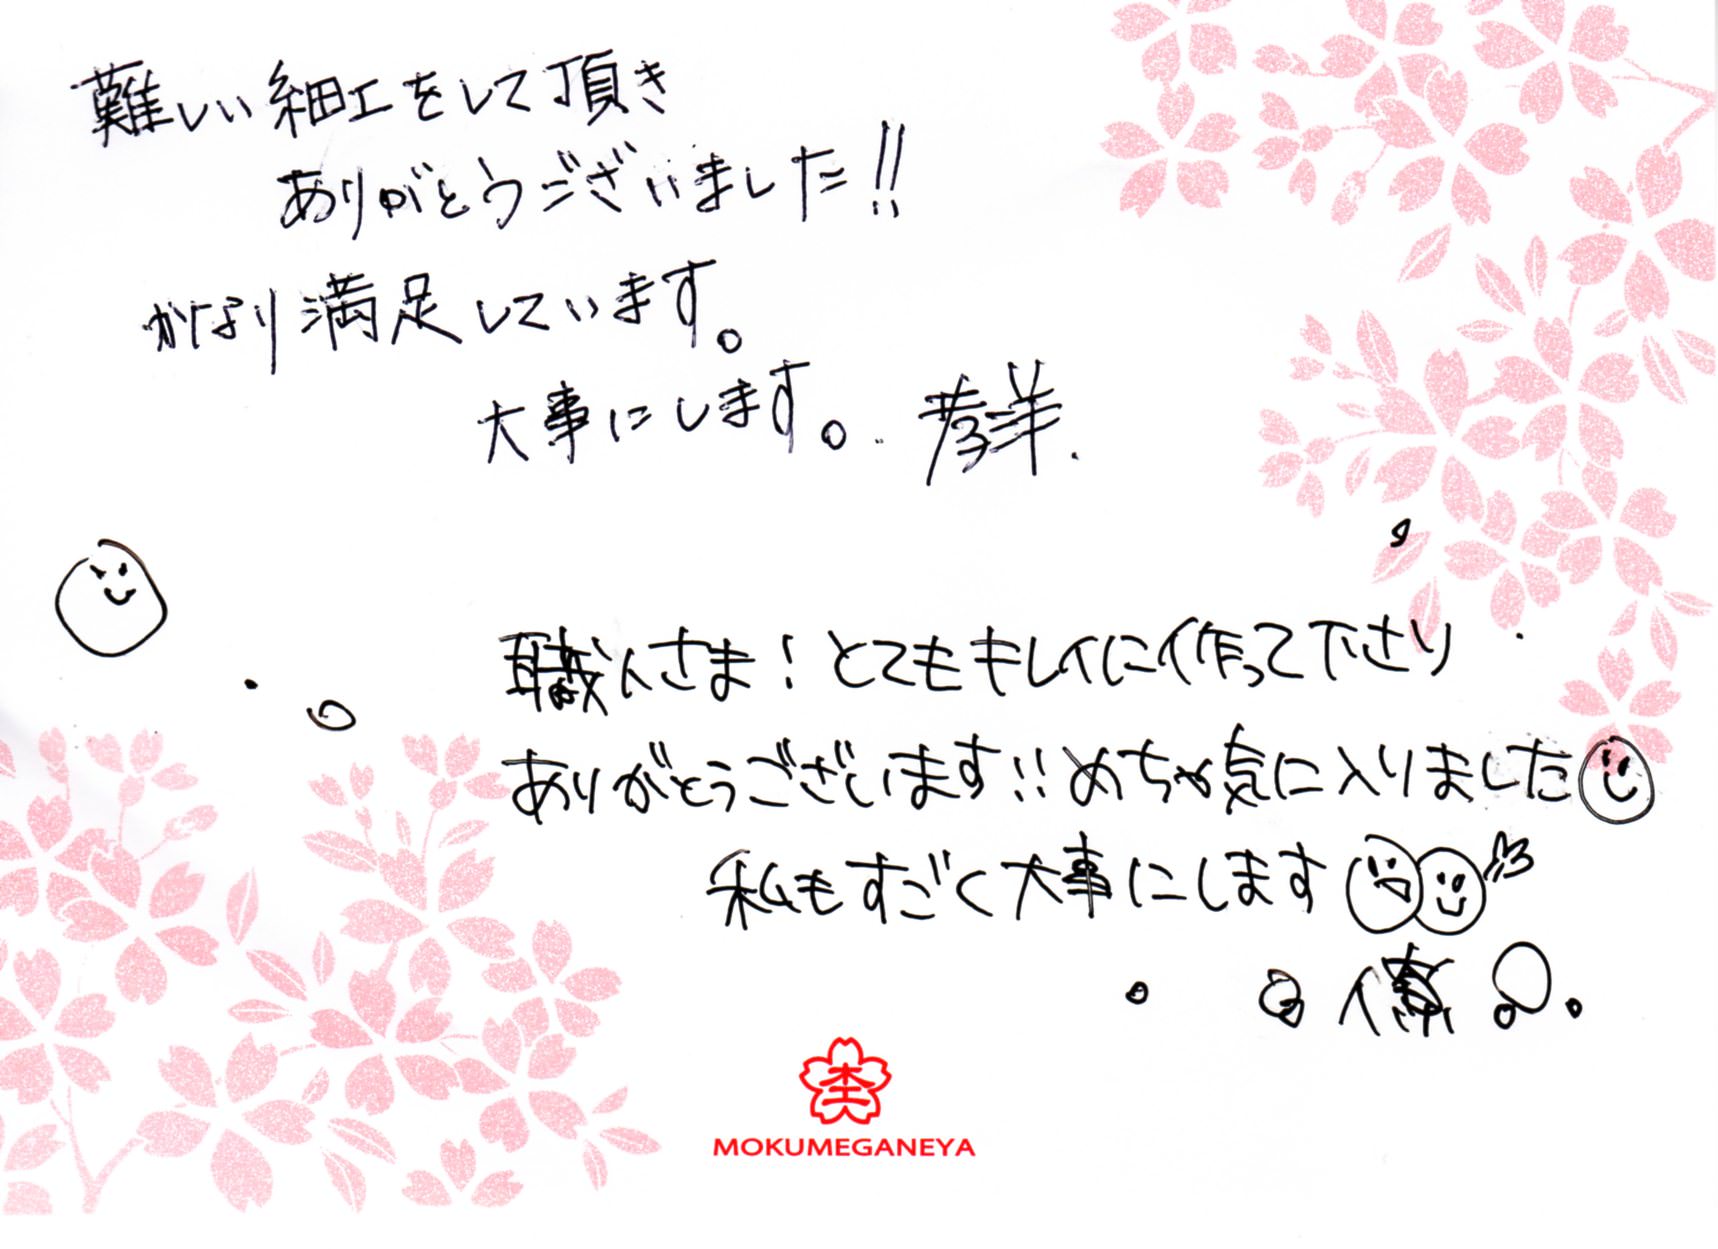 難しい細工をして頂き
ありがとうございました!!
かなり満足しています。
大事にします。 孝洋.
職人さま!とてもキレイに作って下さり
ありがとうございます!!めちゃ気に入りました
私もすごく大事にします
MOKUMEGANEYA